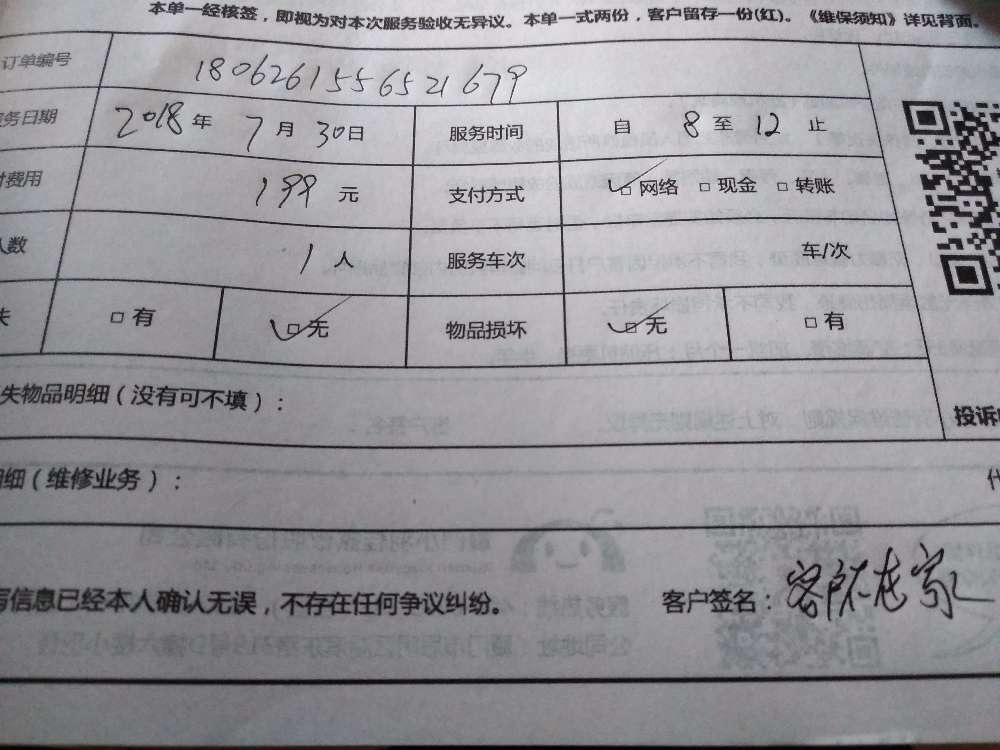 本单一经核签，即视为对本次服务验收无异议。本单一式两份，客户留存一份(红)。《维保须知》详见背面。
订单编号 1806261556521679
务日期 2018年 7月 30日 服务时间 自 8 至 12 止
付费用 199 元 支付方式 □网络 □现金 □转账
人数 1 人 服务车次 车/次
失 □有 □无 物品损坏 □无 □有
失物品明细（没有可不填）：
投诉
细（维修业务）：
写信息已经本人确认无误，不存在任何争议纠纷。 客户签名：客户不在家